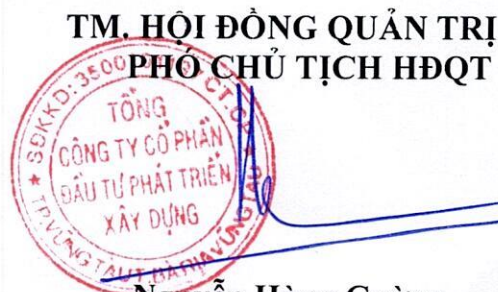 TM. HỘI ĐỒNG QUẢN TRỊ
PHÓ CHỦ TỊCH HĐQT
SĐKKD:3500
C.T.C.P
TỔNG
CÔNG TY CỔ PHẦN
ĐẦU TƯ PHÁT TRIỂN
XÂY DỰNG
TP.VŨNG TÀU T.BÀ RỊA VŨNG TÀU